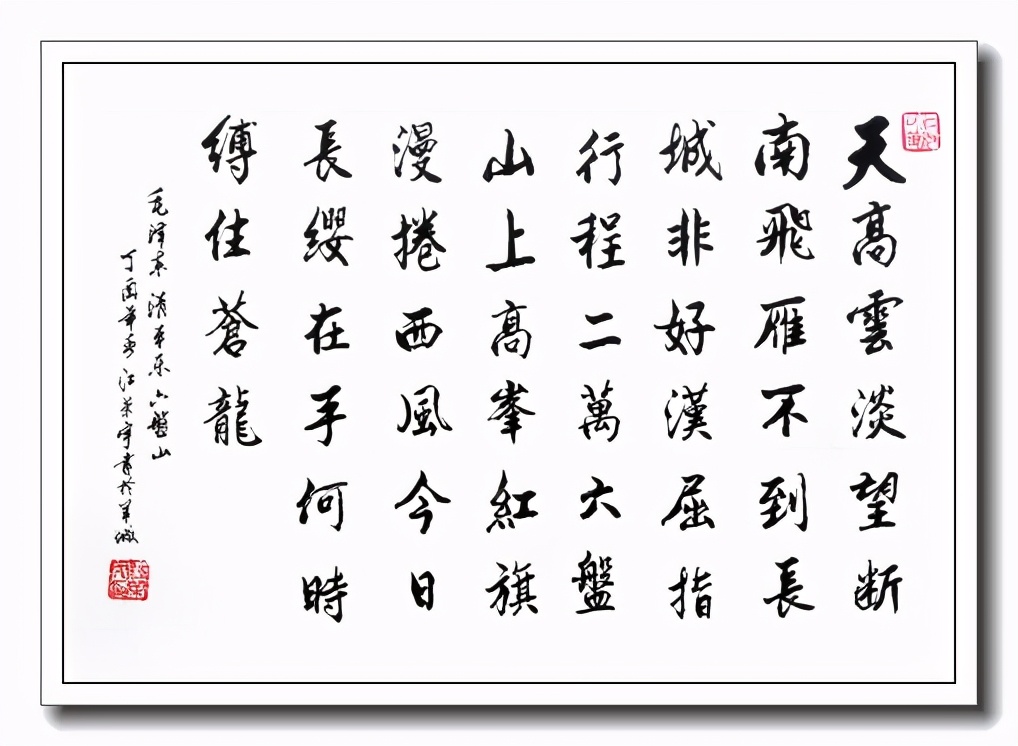 天高雲淡望断
南飛雁不到長
城非好漢屈指
行程二萬六盤
山上高峯紅旗
漫捲西風今日
長纓在手何時
縛住蒼龍
毛泽东清平乐六盤山
丁酉年江書於羊城